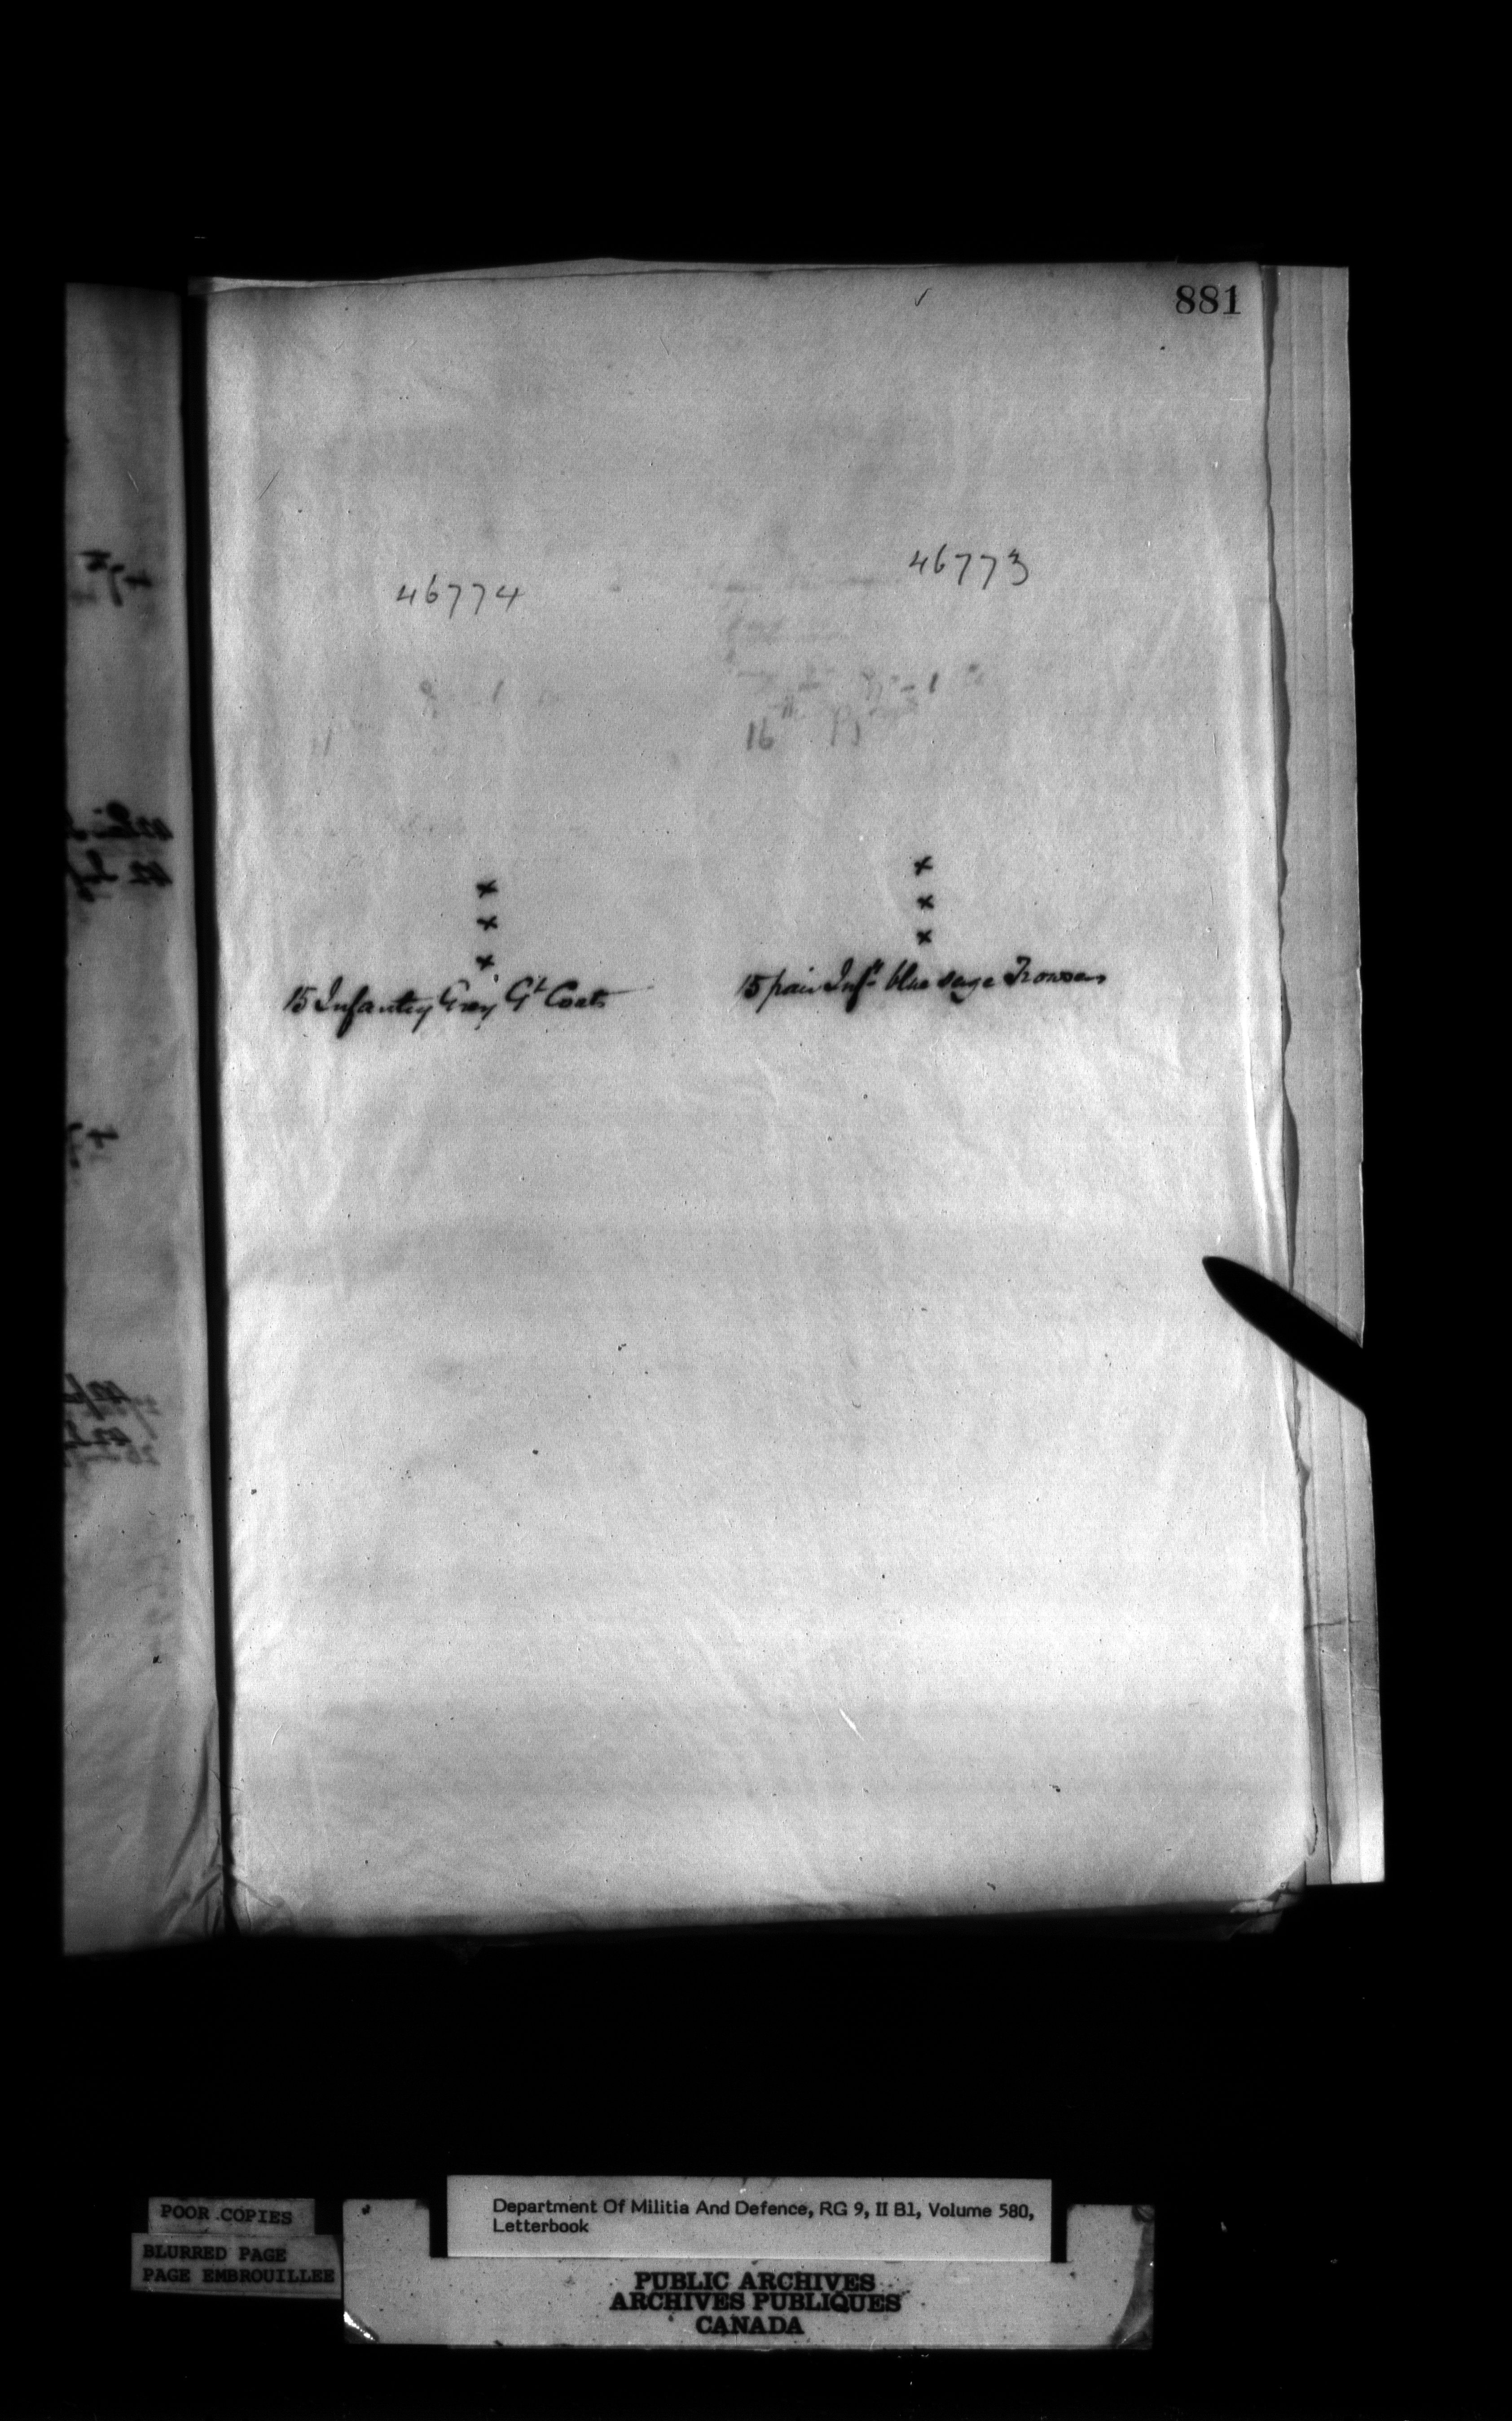 881
46774
46773
16
x
x
x
15 Infantry Grey Gt Coats
x
x
x
15 pair Infy blue serge Trowsers
POOR COPIES
BLURRED PAGE
PAGE EMBROUILLEE
Department Of Militia And Defence, RG 9, II B1, Volume 580,
Letterbook
PUBLIC ARCHIVES
ARCHIVES PUBLIQUES
CANADA